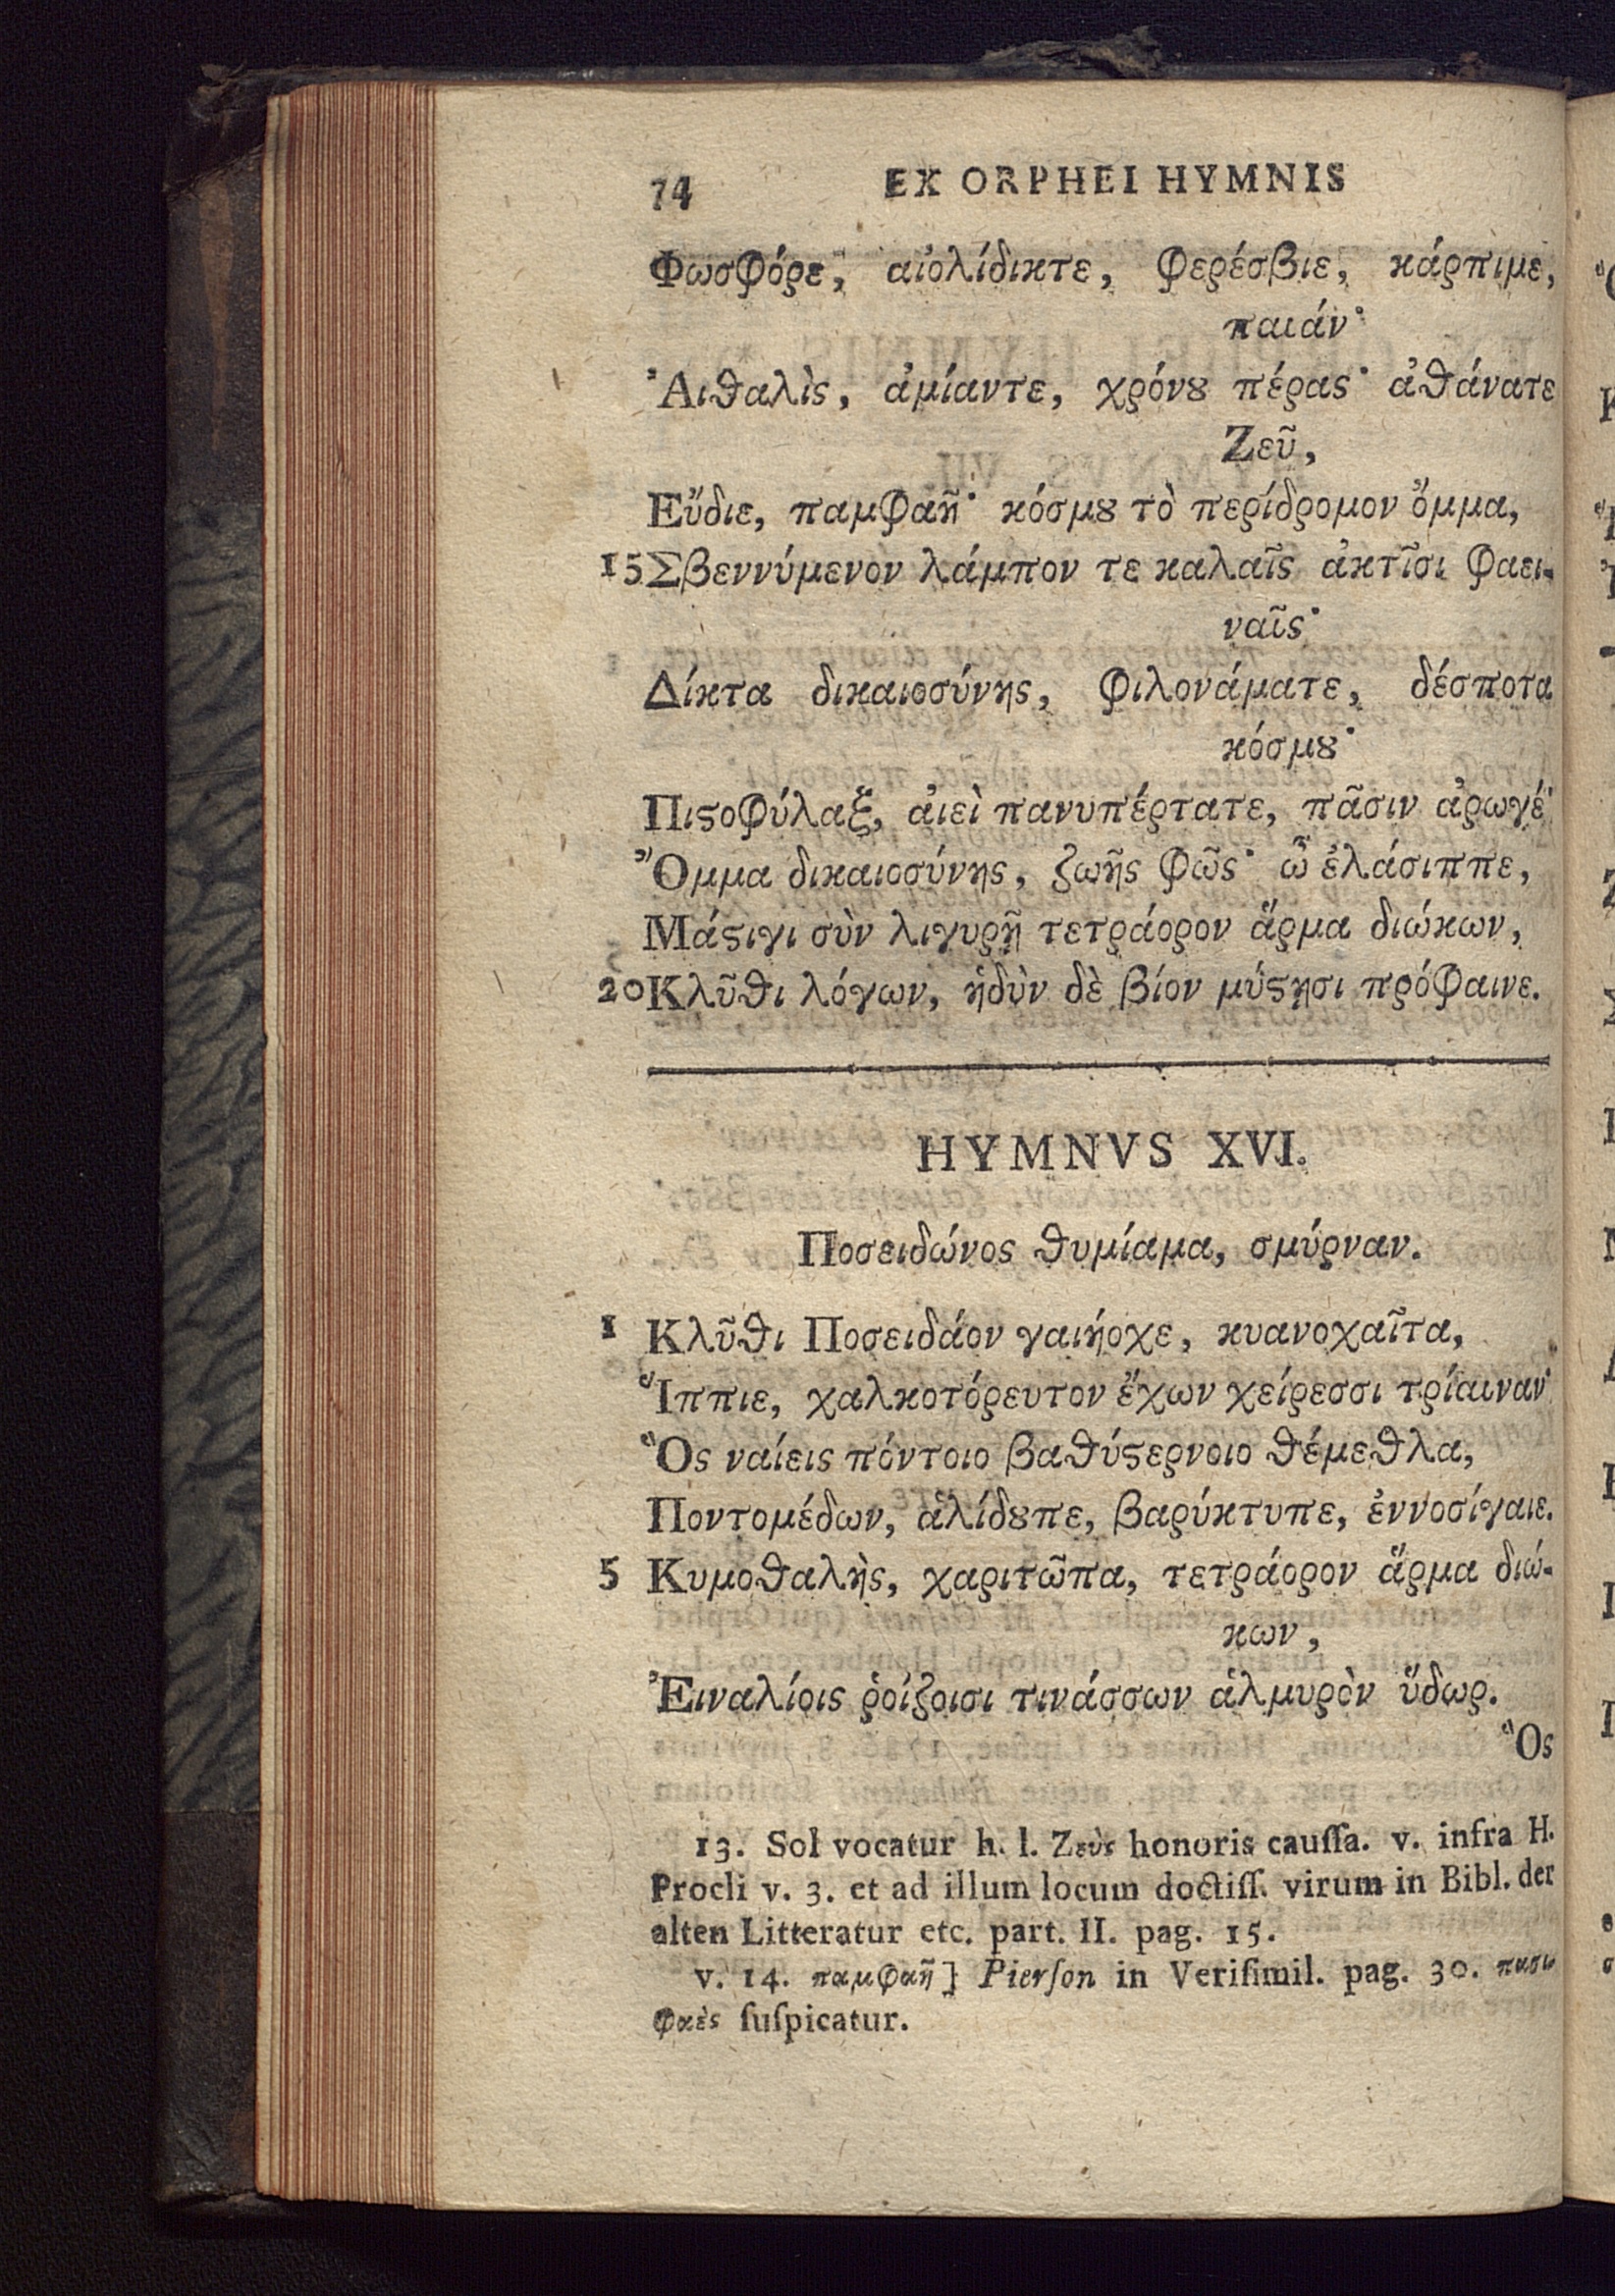 74 EX ORPHEI HYMNIS
Φωσφόρε, αἰολίδικτε, φερέσβιε, κάρπιμε,
παιάν·
Ἀιθαλὶς, ἀμίαντε, χρόνȣ πέρας· ἀθάνατε
Ζεῦ,
Εὔδιε, παμφαῆ· κόσμȣ τὸ περίδρομον ὄμμα,
15 Σβεννύμενον λάμπον τε καλαῖς ἀκτῖσι φαει-
ναῖς·
Δίκτα δικαιοσύνης, φιλονάματε, δέσποτα
κόσμȣ·
Πιϛοφύλαξ, ἀιεὶ πανυπέρτατε, πᾶσιν ἀρωγέ·
Ὄμμα δικαιοσύνης, ζωῆς φῶς· ὦ ἐλάσιππε,
Μάϛιγι σὺν λιγυρῇ τετράορον ἅρμα διώκων,
20 Κλῦθι λόγων, ἡδὺν δὲ βίον μύϛῃσι πρόφαινε.
HYMNVS XVI.
Ποσειδώνος θυμίαμα, σμύρναν.
1 Κλῦθι Ποσειδάον γαιήοχε, κυανοχαῖτα,
Ἵππιε, χαλκοτόρευτον ἔχων χείρεσσι τρίαιναν·
Ὃς ναίεις πόντοιο βαθύϛερνοιο θέμεθλα,
Ποντομέδων, ἁλίδȣπε, βαρύκτυπε, ἐννοσίγαιε.
5 Κυμοθαλὴς, χαριτῶπα, τετράορον ἅρμα διώ-
κων,
Ἐιναλίοις ῥοίζοισι τινάσσων ἁλμυρὸν ὕδωρ.
Ὃς
13. Sol vocatur h. l. Ζεὺς honoris cauſſa. v. infra H.
Procli v. 3. et ad illum locum doctiſſ. virum in Bibl. der
alten Litteratur etc. part. II. pag. 15.
v. 14. παμφαῆ] Pierſon in Veriſimil. pag. 30. πασι
φαὲς ſuſpicatur.